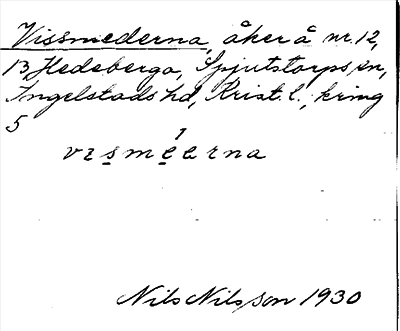 Vissmederna, åker å nr. 12,
13 Hedeberga, Spjutstorps sn,
Ingelstads hd, Krist. l., kring
5
1
vismeerna
Nils Nilsson 1930